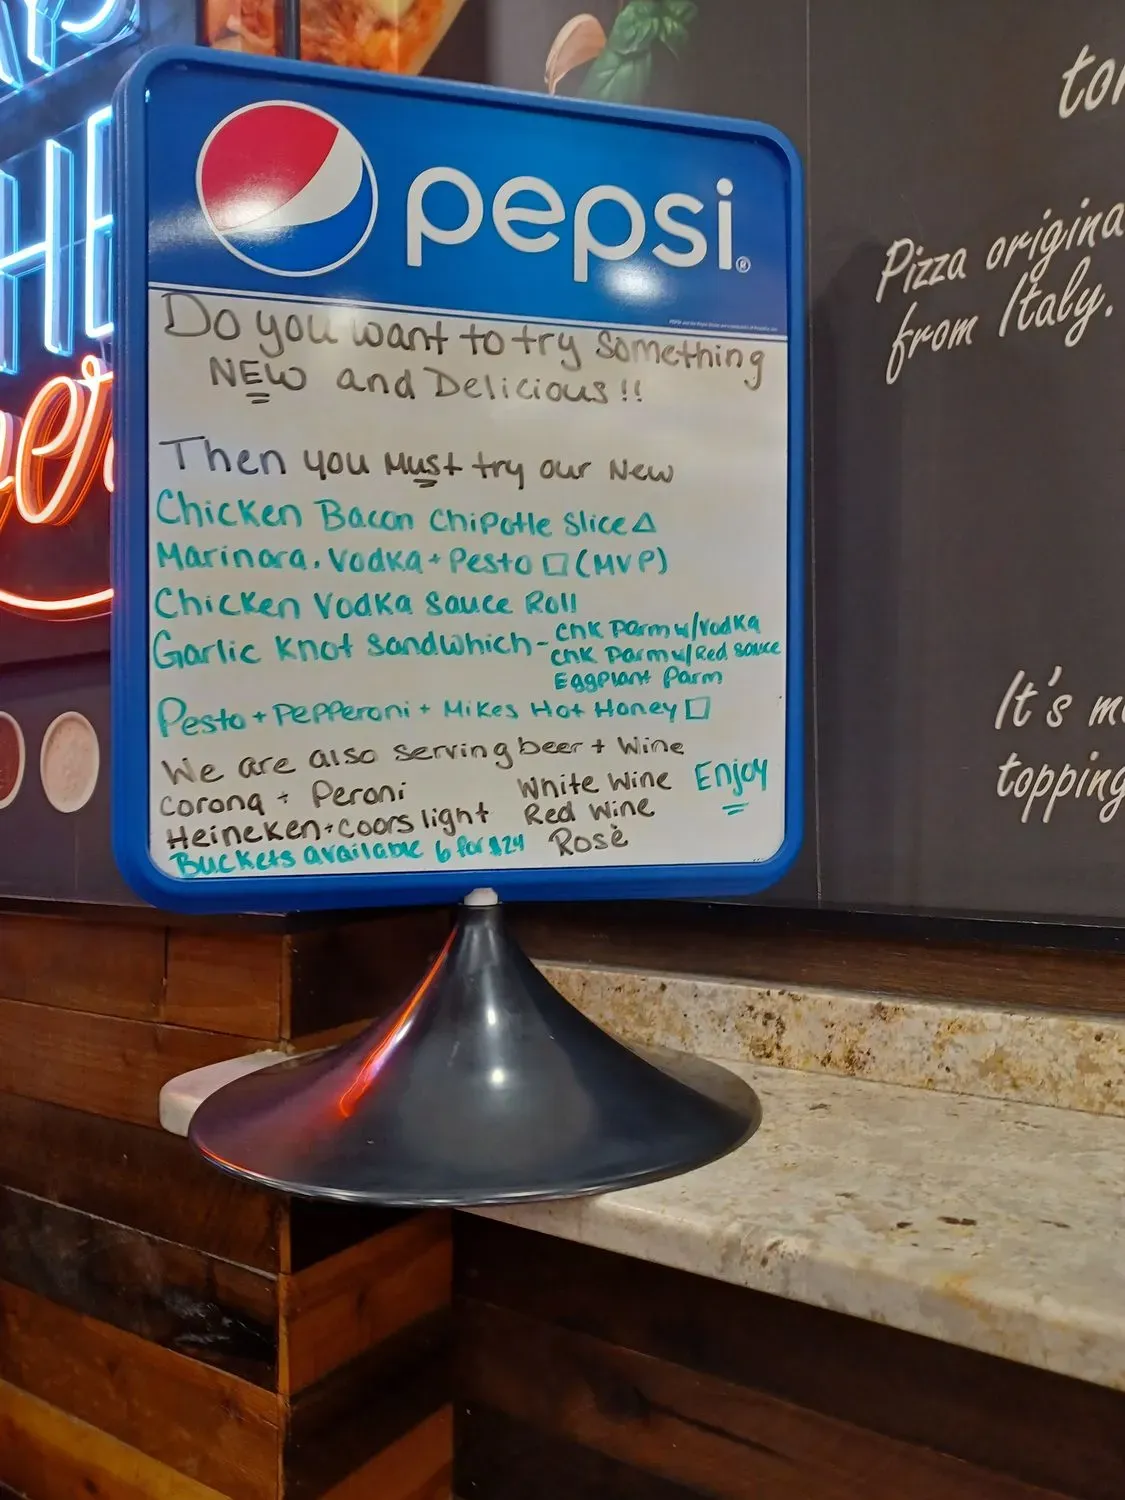 pepsi®
Do you want to try something
NEW and Delicious!!
Then you Must try our New
Chicken Bacon Chipotle Slice △
Marinara, Vodka + Pesto □ (MVP)
Chicken Vodka Sauce Roll
Garlic Knot Sandwhich - Chk Parm w/Vodka
Chk Parm w/Red sauce
Eggplant Parm
Pesto + Pepperoni + Mikes Hot Honey □
We are also serving beer + Wine
Corona + Peroni White Wine Enjoy
Heineken + Coors light Red Wine
Buckets available 6 for $24 Rosè
Pizza origina
from Italy.
It's m
topping